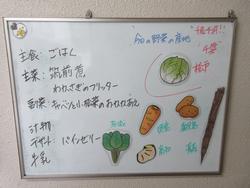 主食：ごはん
主菜：筑前煮
わかさぎのフリッター
副菜：キャベツと小松菜のおかかあえ
汁物：
デザート：パインゼリー
牛乳
今日の野菜の産地
千葉
松戸
茨城
徳島
高知